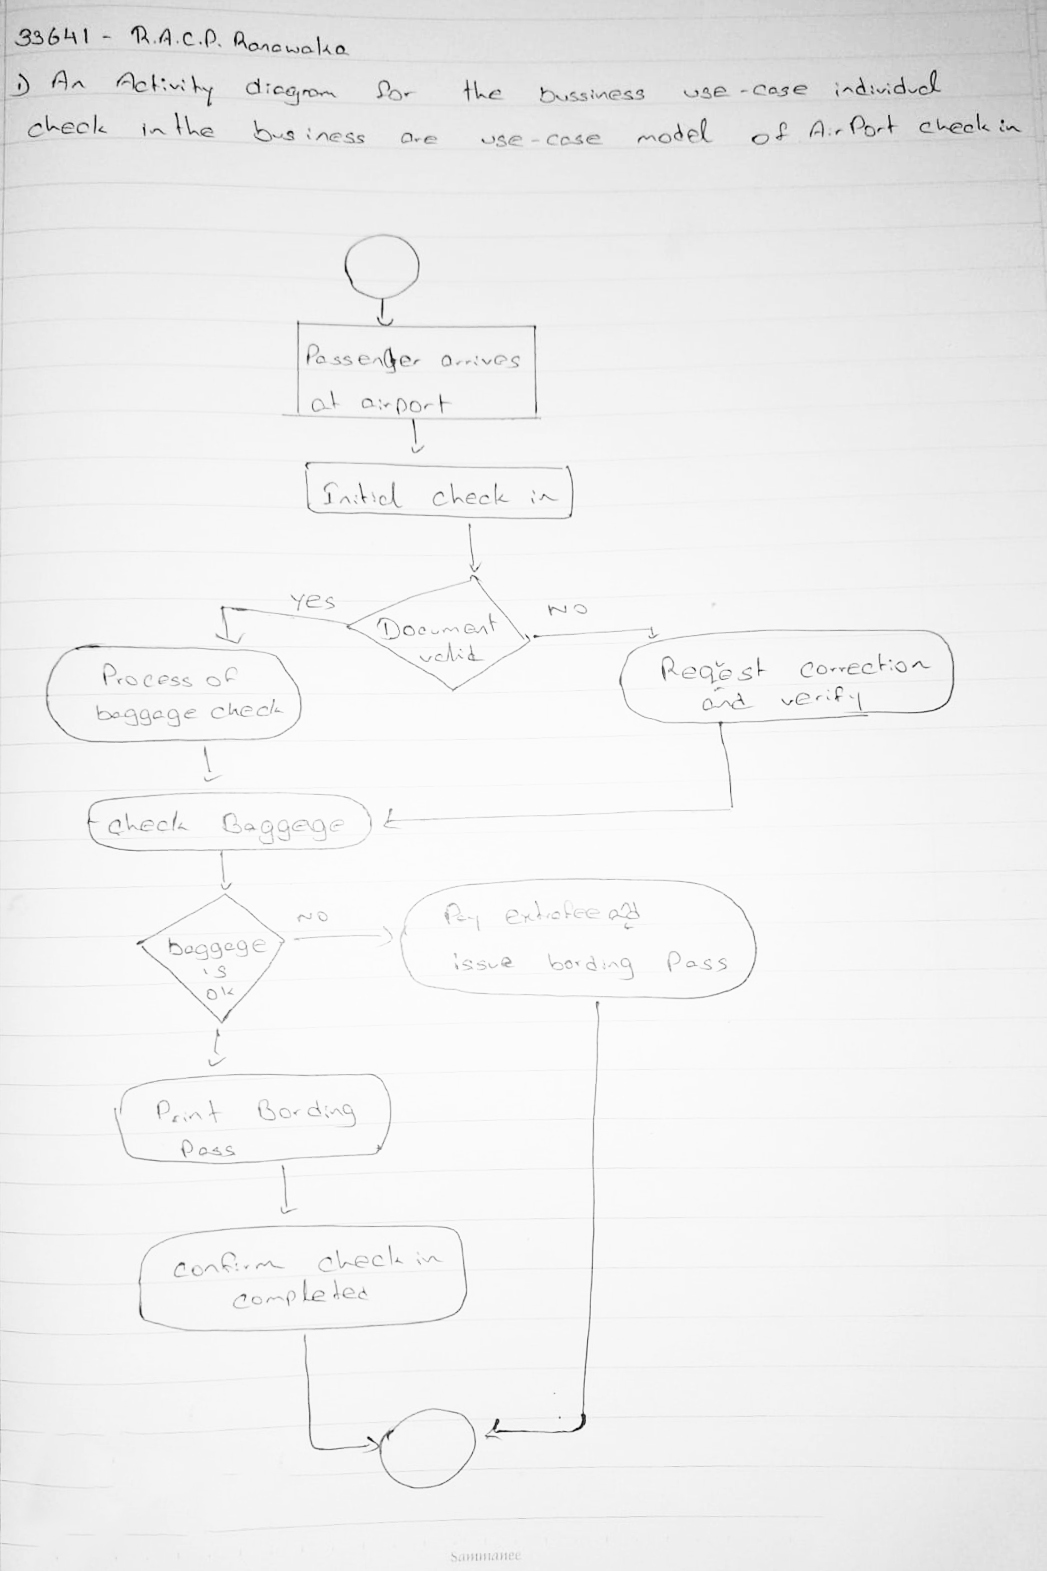 33641 - R.A.C.P. Ranawaka
1) An Activity diagram for the bussiness use-case individual
check in the business are use-case model of AirPort check in
Passenger arrives
at airport
Initial check in
yes
NO
Document
valid
Process of
baggage check
Reqest correction
and verify
check Baggage
NO
baggage
is
ok
Pay extrafee and
issue bording Pass
Print Bording
Pass
confirm check in
completed
Sammanee